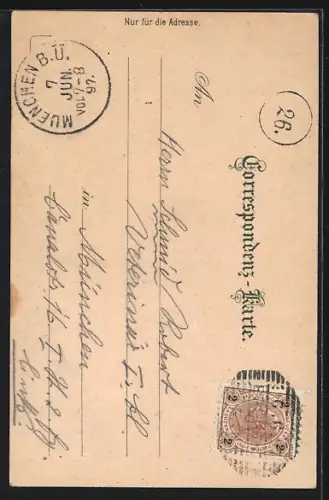 Nur für die Adresse.
Correspondenz-Karte.
An
Herrn Schmid Robert
Veterinär I. Cl.
in München
links
MUENCHEN B.Ü.
7
JUN.
VOR 7-8
97.
26.
2
2
2
2